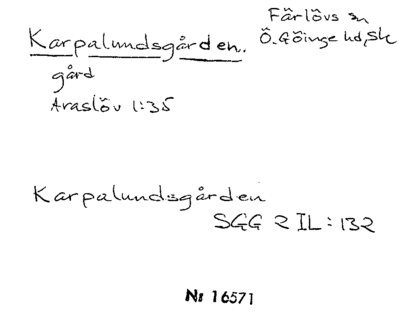 Karpalundsgården.
Färlövs sn
Ö. Göinge hd, Sk
gård
Araslöv 1:35
Karpalundsgården
SGG 2 IL: 132
Nr 16571